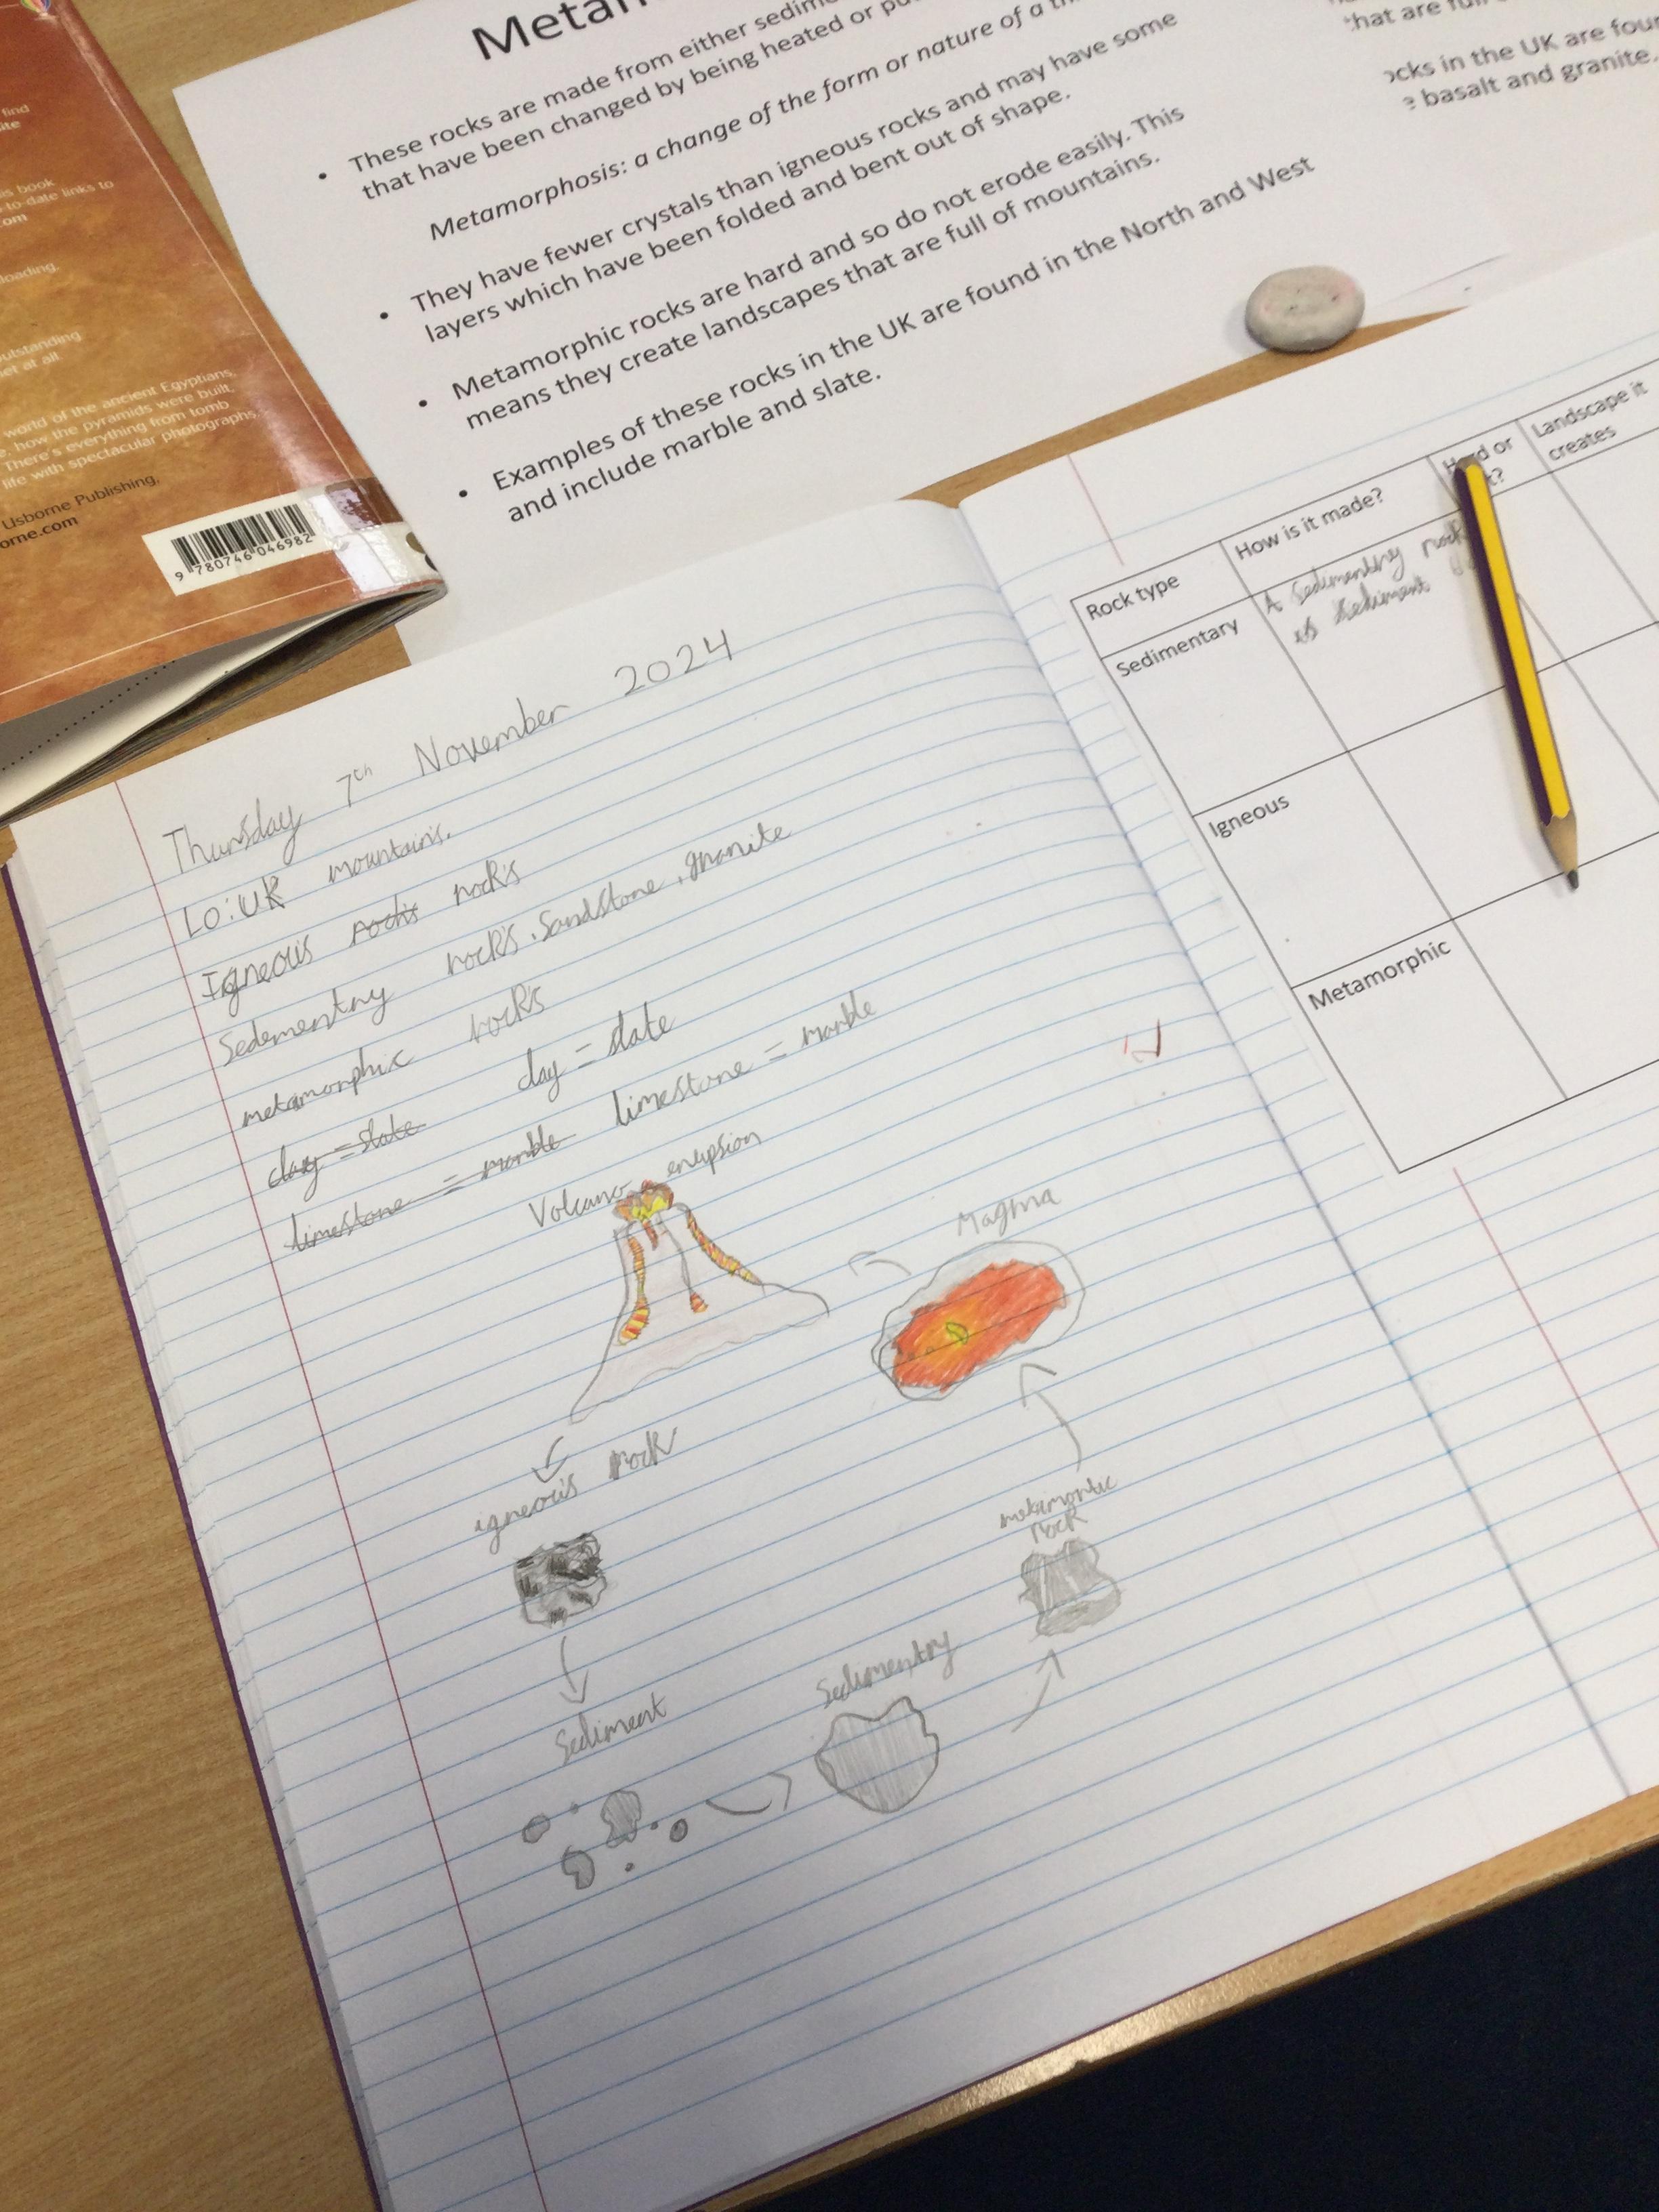 find
is book
-to-date links to
om
loading.
utstanding
et at all
world of the ancient Egyptians,
how the pyramids were built,
There's everything from tomb
life with spectacular photographs.
Usborne Publishing,
orne.com
9 780746 046982
Metam
• These rocks are made from either sedim
that have been changed by being heated or pu
Metamorphosis: a change of the form or nature of a th
• They have fewer crystals than igneous rocks and may have some
layers which have been folded and bent out of shape.
• Metamorphic rocks are hard and so do not erode easily. This
means they create landscapes that are full of mountains.
• Examples of these rocks in the UK are found in the North and West
and include marble and slate.
that are full
ocks in the UK are foun
e basalt and granite.
Thursday 7th November 2024
LO: UK mountains.
Igneous rocks rocks
Sedementry rocks, Sandstone, granite
metamorphic rocks
clay = slate clay = slate
limestone = marble limestone = marble
Volcano erupsion
Maghma
igneous rock
metamortic
rock
Sediment
Sedimentry
Rock type
How is it made?
Hard or
t?
Landscape it
creates
Sedimentary
A Sedimentry rock
is sediment
Igneous
Metamorphic